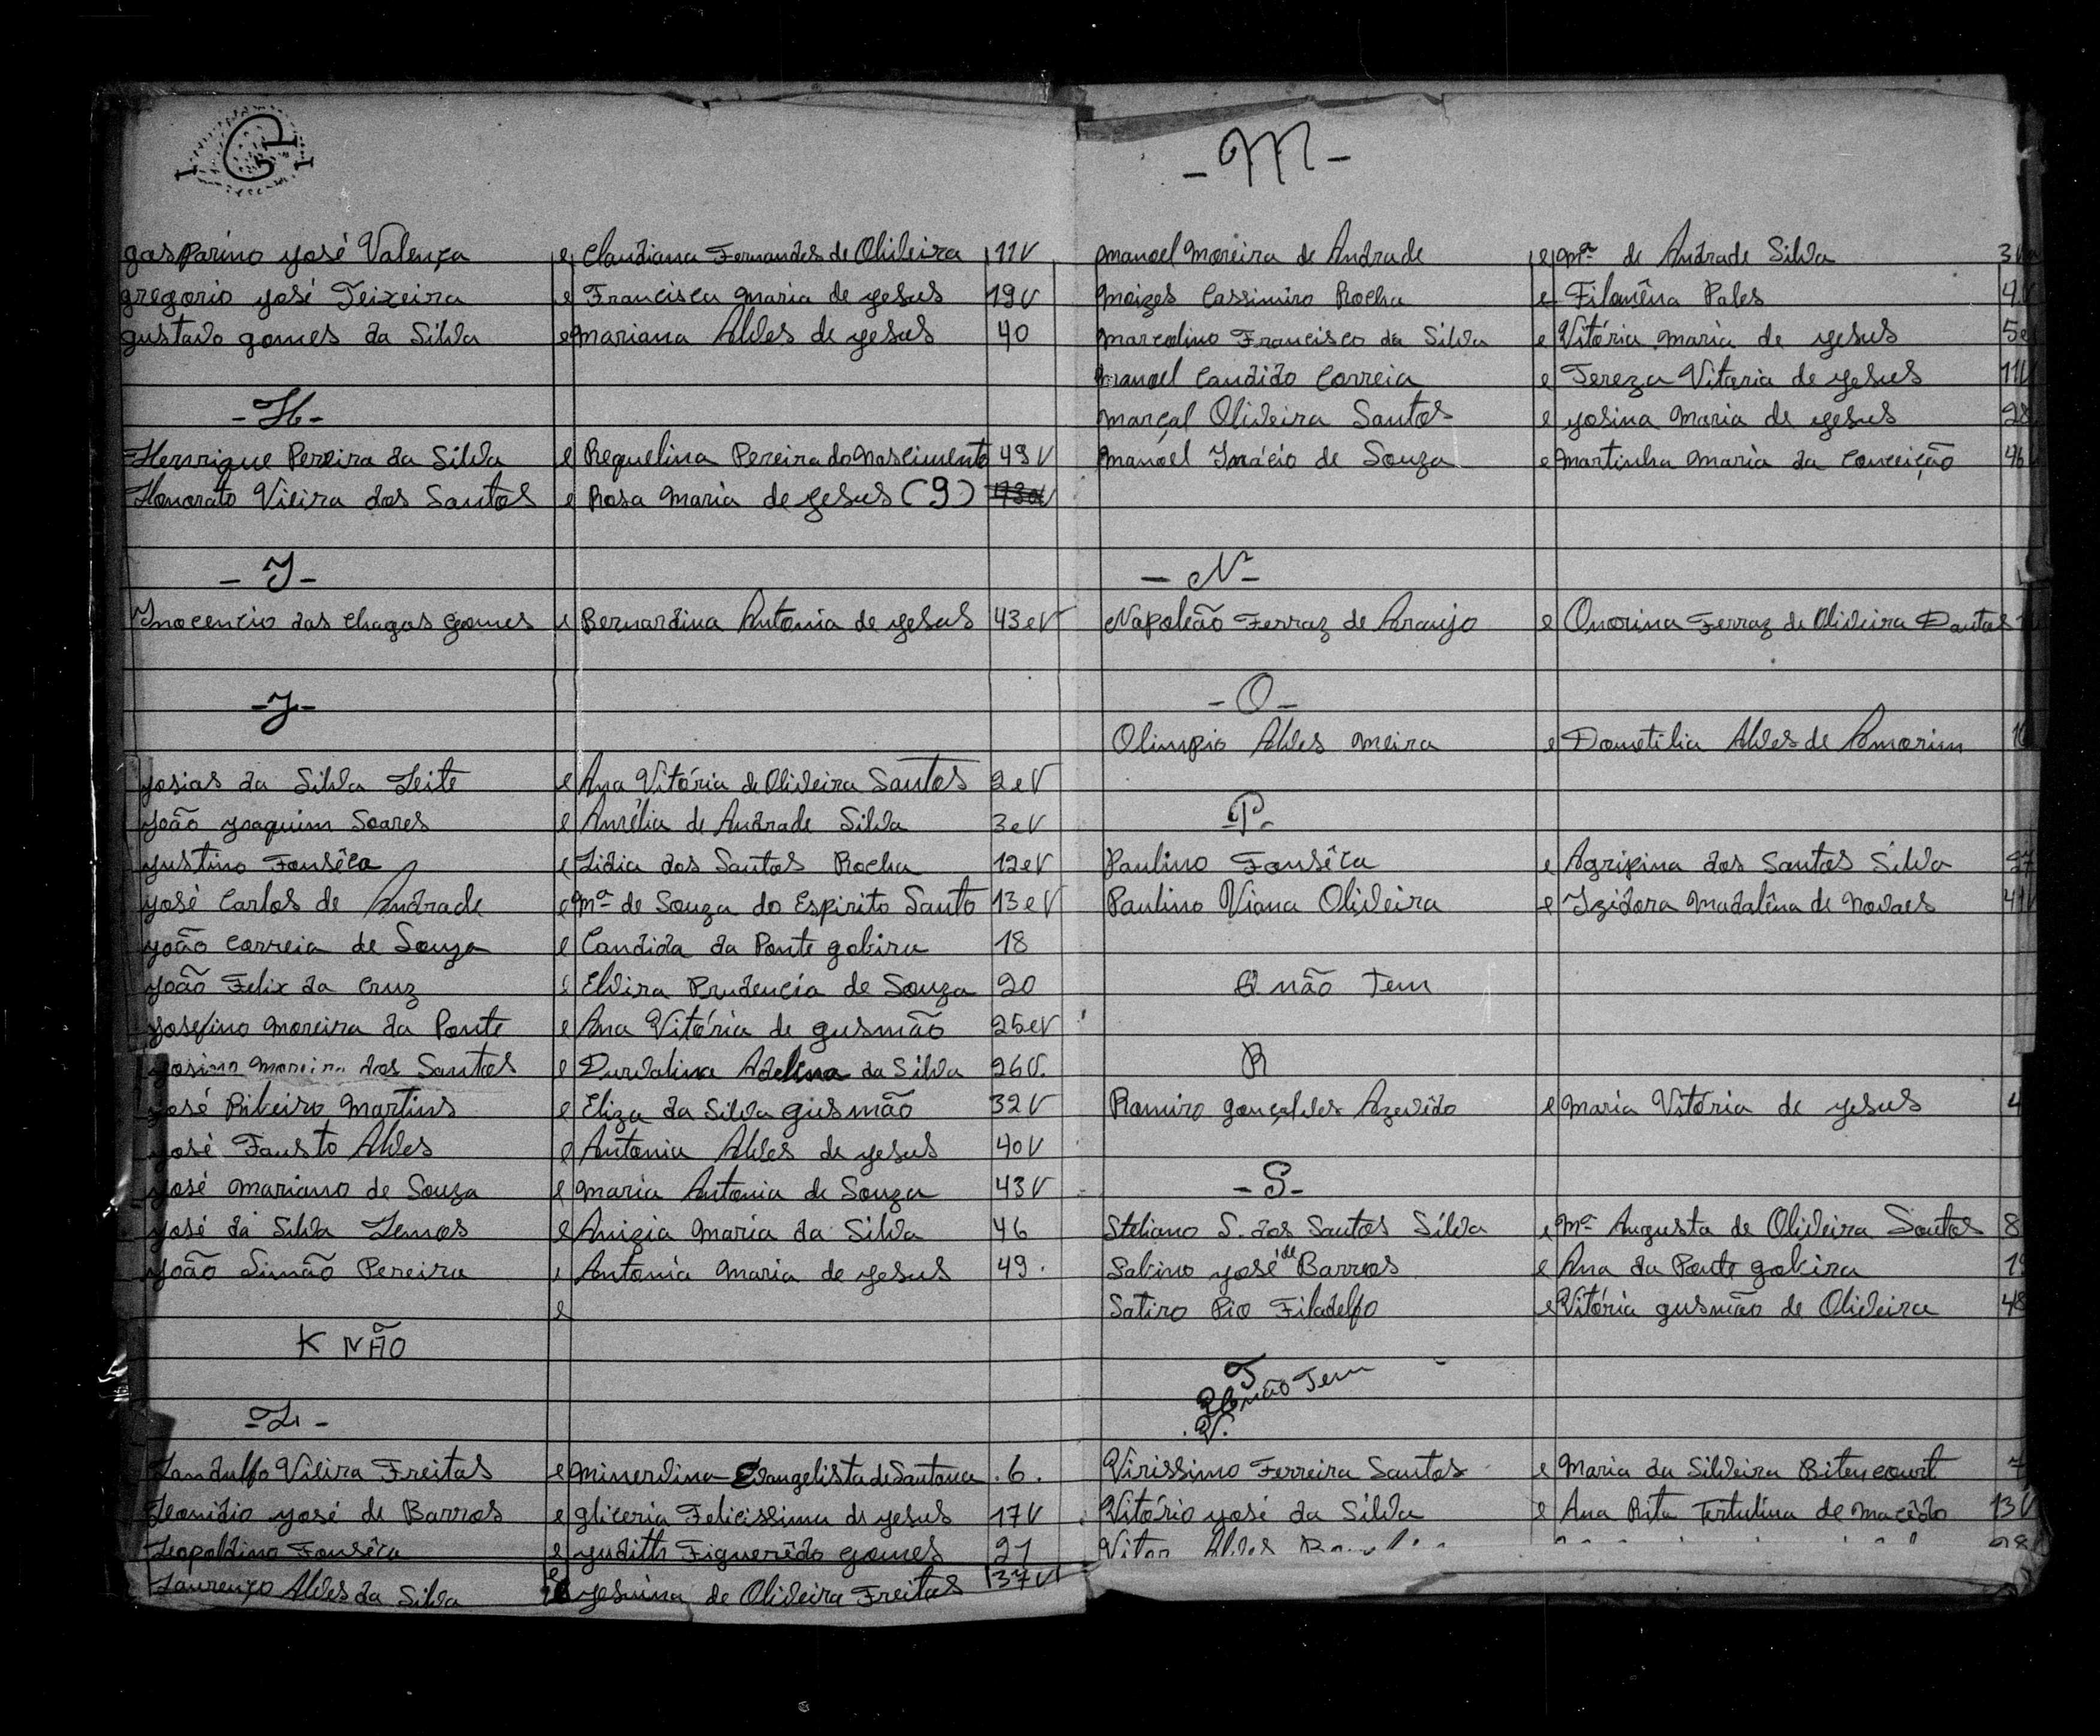 G
Gasparino José Valença e Claudiana Fernandes de Oliveira 11V
Gregorio José Teixeira e Francisca Maria de Jesus 19V
Gustavo Gomes da Silva e Mariana Alves de Jesus 40
-H-
Henrrique Pereira da Silva e Requelina Pereira do Nascimento 49V
Honorato Vieira dos Santos e Rosa Maria de Jesus (9)
-I-
Inocencio das Chagas Gomes e Bernardina Antonia de Jesus 43eV
-J-
Josias da Silva Leite e Ana Vitória de Oliveira Santos 2eV
João Joaquim Soares e Amélia de Andrade Silva 3eV
Justino Fonsêca e Lidia dos Santos Rocha 12eV
José Carlos de Andrade e Mª de Souza do Espirito Santo 13eV
João Correia de Souza e Candida da Ponte Gobira 18
João Felix da Cruz e Elvira Prudencia de Souza 20
Josefino Moreira da Ponte e Ana Vitória de Gusmão 25eV
Josino Moreira dos Santos e Durvalina Adelina da Silva 26V.
José Ribeiro Martins e Eliza da Silva Gusmão 32V
José Fausto Alves e Antonia Alves de Jesus 40V
José Mariano de Souza e Maria Antonia de Souza 43V
José da Silva Lemos e Anizia Maria da Silva 46
João Simão Pereira e Antonia Maria de Jesus 49.
e
K NÃO
-L-
Landulfo Vieira Freitas e Minervina Evangelista de Santana .6.
Leonidio José de Barros e Gliceria Felicissima de Jesus 17V
Leopoldino Fonsêca e Judith Figuerêdo Gomes 21
Laurenço Alves da Silva e Jesuina de Oliveira Freitas 37V
-M-
Manoel Moreira de Andrade e Mª de Andrade Silva
Moizes Cassimiro Rocha e Filomêna Pales
Marcolino Francisco da Silva e Vitória Maria de Jesus
Manoel Candido Correia e Tereza Vitoria de Jesus
Marçal Oliveira Santos e Josina Maria de Jesus
Manoel Inácio de Souza e Martinha Maria da Conceição
-N-
Napoleão Ferraz de Araujo e Onorina Ferraz de Oliveira Dantas
-O-
Olimpio Alves Meira e Dometilia Alves de Amorim
P.
Paulino Fonsêca e Agripina dos Santos Silva
Paulino Viana Oliveira e Izidora Madalêna de Novaes
Q não Tem
R
Ramiro Gonçalves Azevêdo e Maria Vitória de Jesus
-S-
Steliano S. dos Santos Silva e Mª Augusta de Oliveira Santos 8
Sabino José de Barros e Ana da Ponte Gobira
Satiro Pio Filadelfo e Vitória Gusmão de Oliveira 48
T
não Tem
.V.
Virissimo Ferreira Santos e Maria da Silveira Bitencourt
Vitório José da Silva e Ana Rita Tertulina de Macêdo 13V
Vitor Alves